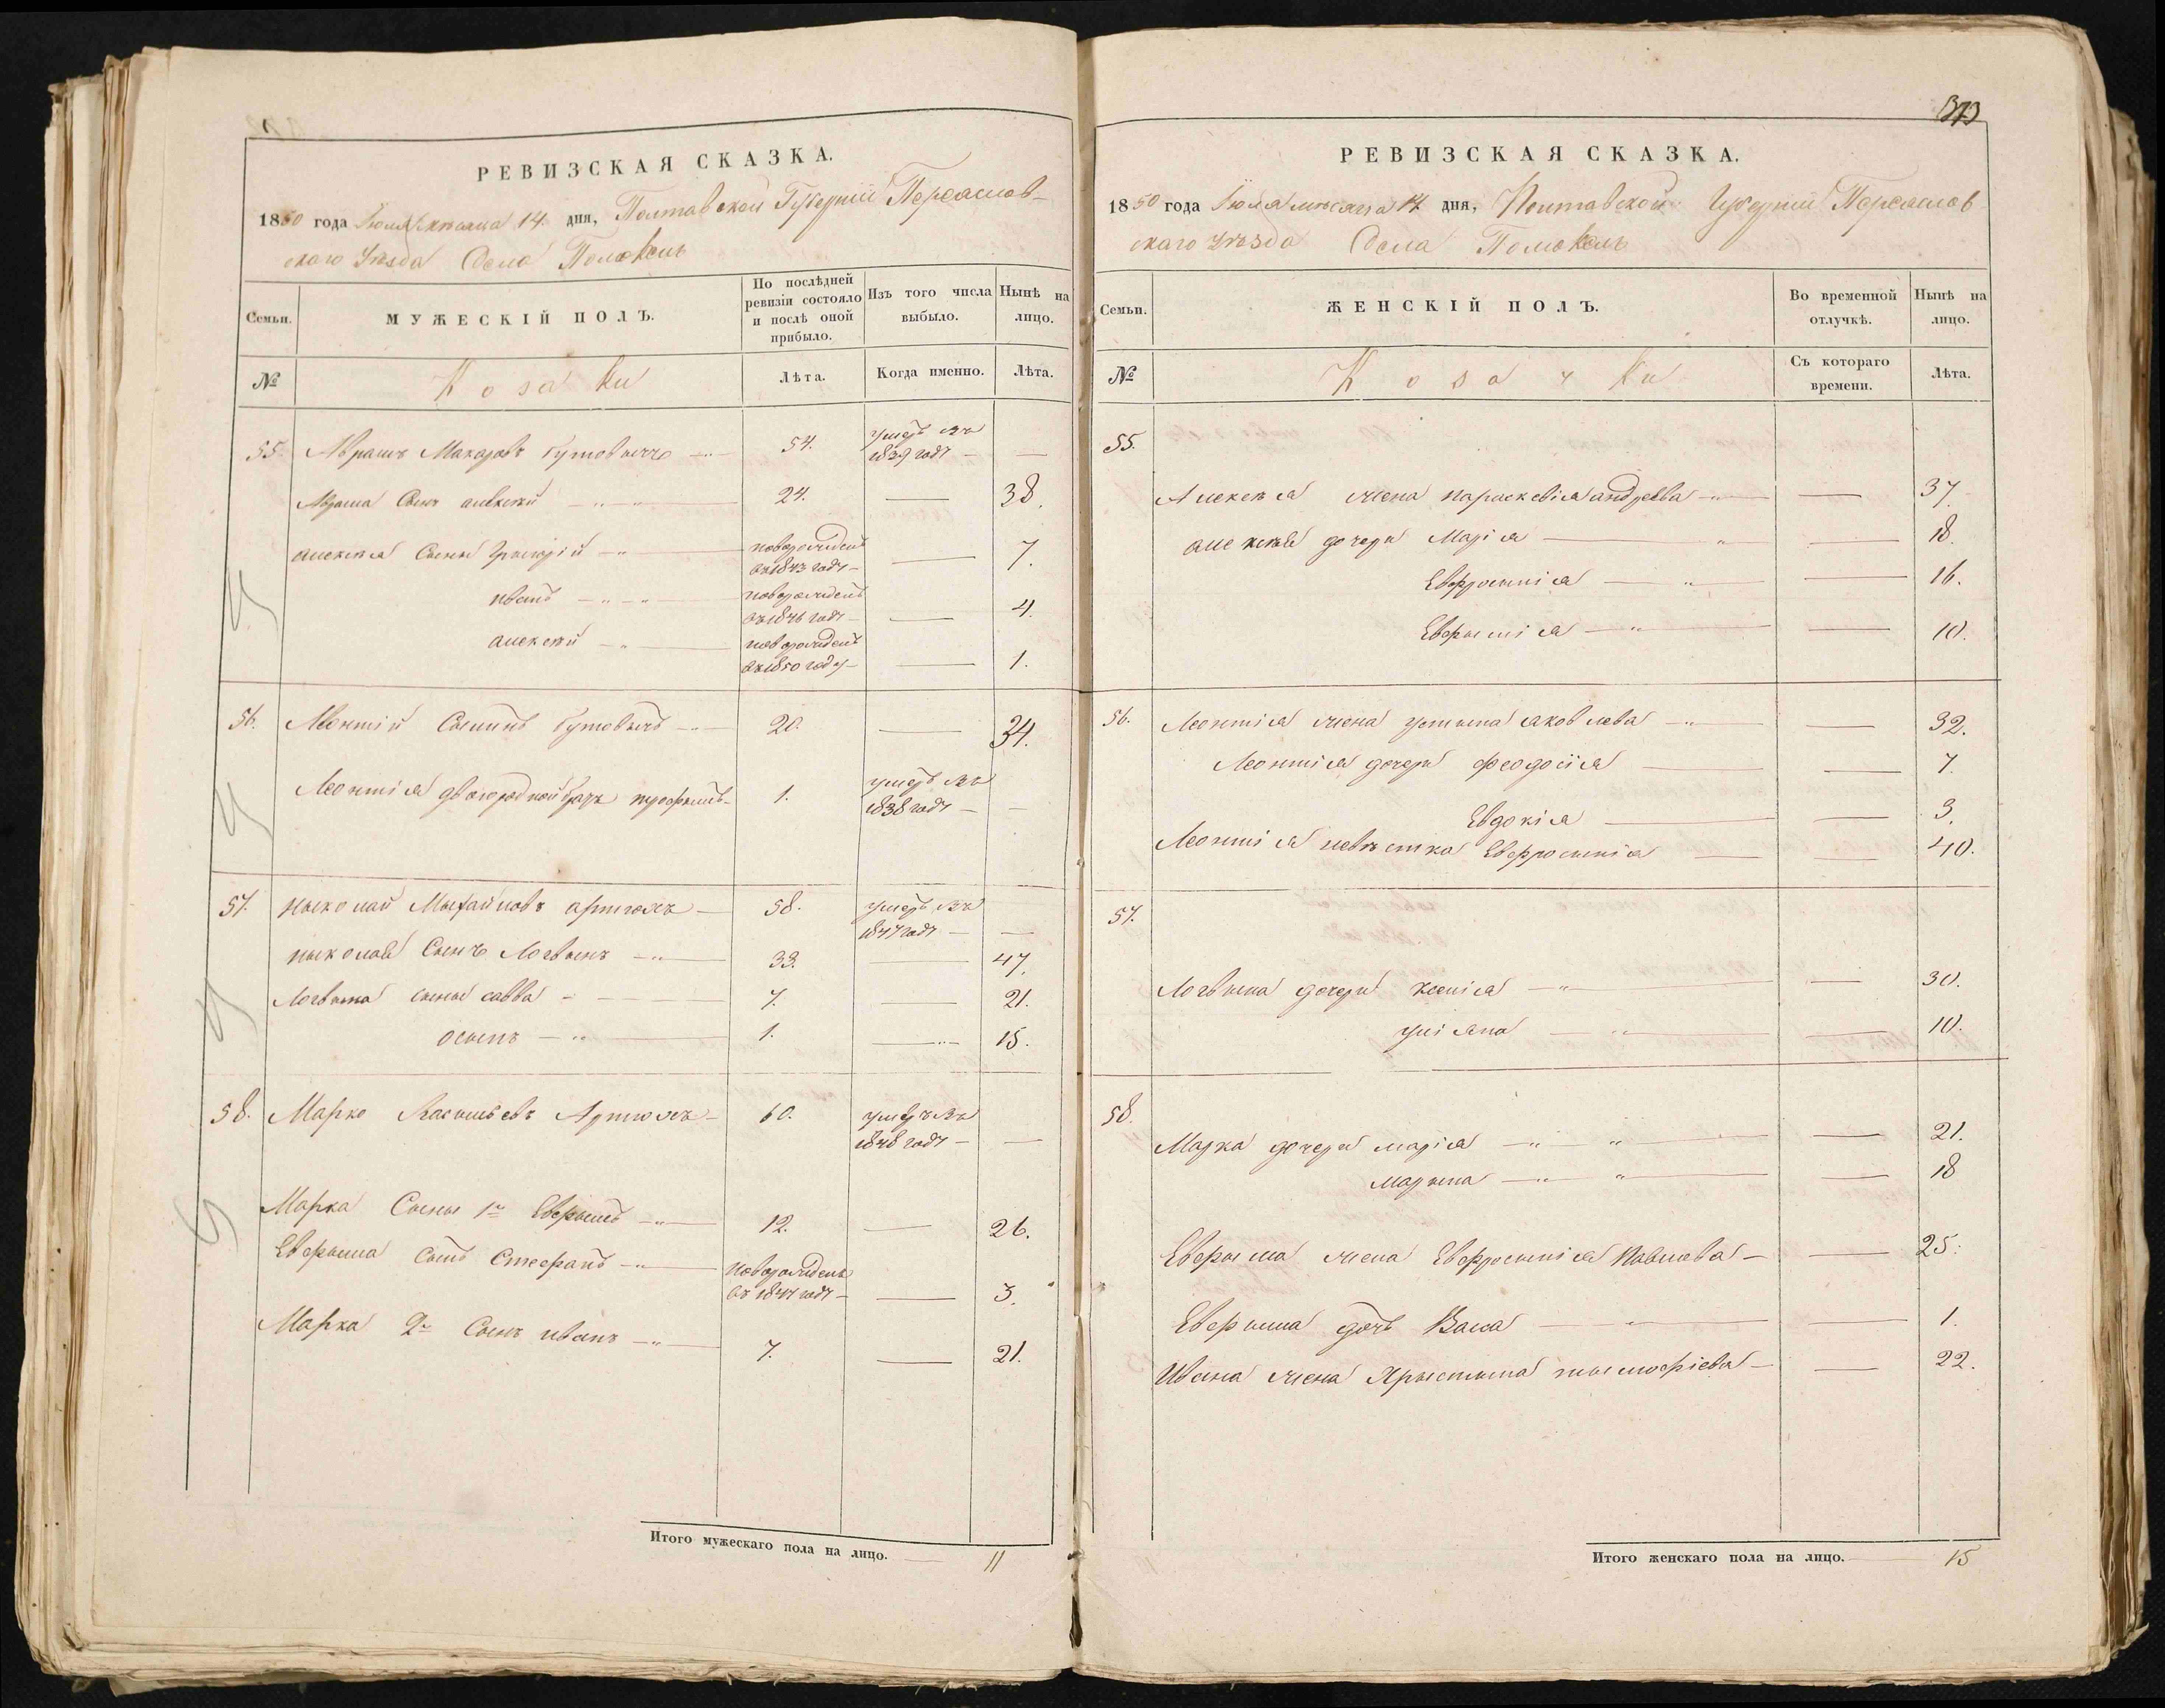 РЕВИЗСКАЯ СКАЗКА.
1850 года Іюля мѣсяца 14. дня, Полтавской Губерніи Переаслов-
скаго Уѣзда Села Помокель
Семьи.
МУЖЕСКІЙ ПОЛЪ.
По послѣдней ревизіи состояло и послѣ оной прибыло.
Изъ того числа выбыло.
Нынѣ на лицо.
№
Козаки
Лѣта.
Когда именно.
Лѣта.
55. Аврамъ Макаровъ Бутовычъ 54. умеръ въ 1839 году — —
Аврама Сынъ алексѣй 24. — 38.
алексѣя Сыны Григорій новорожденъ въ 1843 году — — 7.
иванъ новорожденъ въ 1846 году — — 4.
алексѣй новорожденъ въ 1850 году — — 1.
56. Леонтій Бутовычъ 20. — 34.
Леонтія двоюродной братъ трофымъ 1. умеръ въ 1838 году — —
57. ныколай Мыхайловъ артюхъ 58. умеръ въ 1847 году — —
ныколая Сынъ Логвынъ 33. — 47.
Логвына сыны савва 7. — 21.
осыпъ 1. — 15.
58. Марко Васыльевъ Артюхъ 60. умеръ въ 1848 году — —
Марка Сыны 1й Евфымъ 12. — 26.
Евфыма сынъ Стефанъ новорожденъ въ 1847 году — — 3.
Марка 2й Сынъ иванъ 7. — 21.
Итого мужескаго пола на лицо. 11
373
РЕВИЗСКАЯ СКАЗКА.
1850 года Іюля мѣсяца 14 дня, Полтавской Губерніи Переаслов
скаго Уѣзда Села Помокель
Семьи.
ЖЕНСКІЙ ПОЛЪ.
Во временной отлучкѣ.
Нынѣ на лицо.
№
Козачки
Съ котораго времени.
Лѣта.
55.
Алексѣя жена параскевія андреева — 37
алексѣя дочери Марія — 18.
Евфросынія — 16.
Евфымія — 10.
56. Леонтія жена устына яковлева — 32.
Леонтія дочери феодосія — 7.
Евдокія — 3.
Леонтія невѣстка Евфросынія — 40.
57.
Логвына дочери ксенія — 30.
уліяна — 10.
58.
Марка дочери марія — 21.
Марына — 18
Евфыма жена Евфросынія Павлова — 25.
Евфыма дочь Васса — 1.
Ивана жена Хрыстына тымофіева — 22.
Итого женскаго пола на лицо. 15